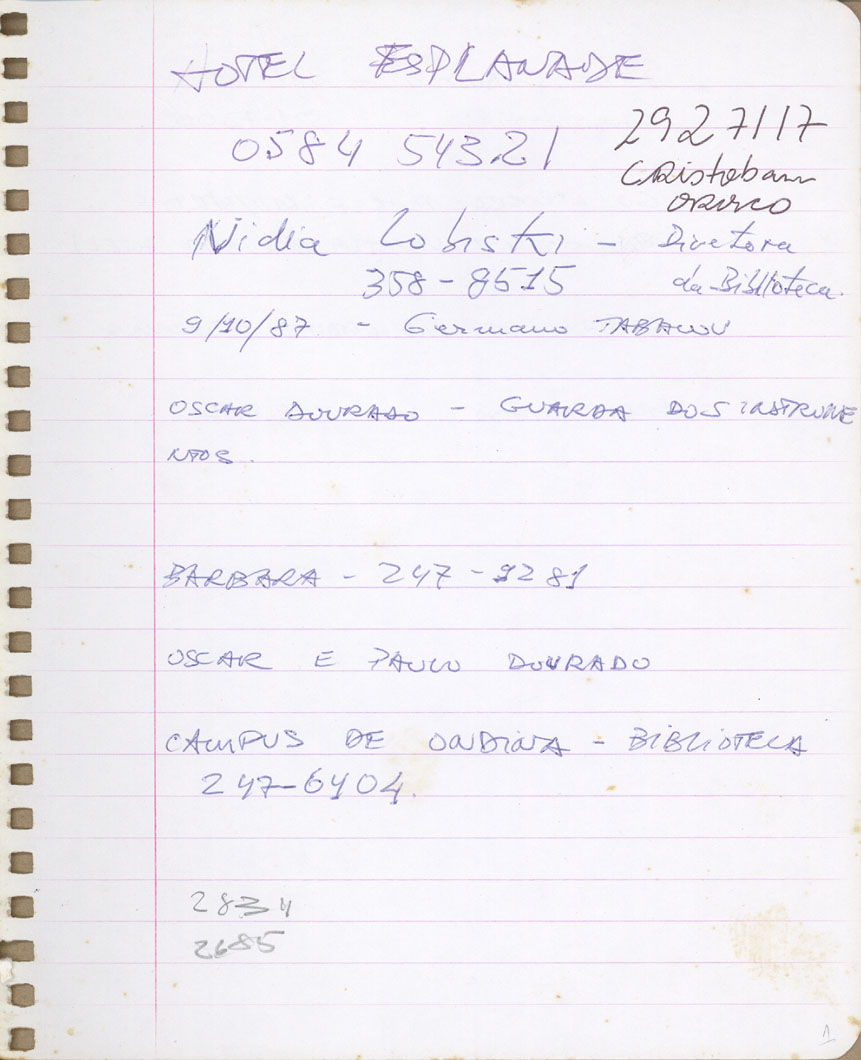 HOTEL ESPLANADE
0584 54321
2927117
CRistobam
OROZCO
Nidia Lobiski – Diretora
358-8515 da Biblioteca.
9/10/87 - Germano TABACOV
OSCAR DOURADO – GUARDA DOS INSTRUME
NTOS.
BÁRBARA - 247-9281
OSCAR E PAULO DOURADO
CAMPUS DE ONDINA – BIBLIOTECA
247-6404.
2834
2685
1